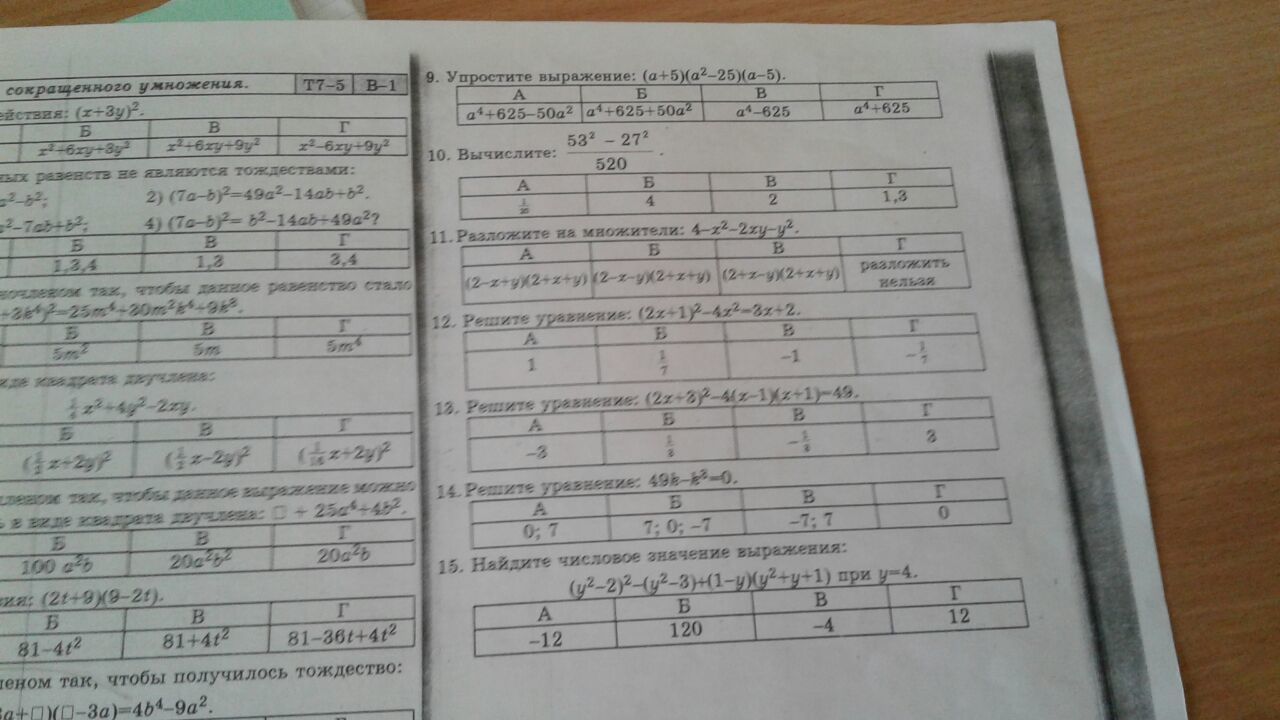 сокращенного умножения. Т7–5 В–1
действия: (x+3y)².
Б В Г
x²+6xy+3y² x²+6xy+9y² x²–6xy+9y²
равенств не являются тождествами:
a²–b²; 2) (7a–b)²=49a²–14ab+b².
–7ab+b²; 4) (7a–b)²= b²–14ab+49a²?
Б В Г
1,3,4 1,3 3,4
так, чтобы данное равенство стало
+3k⁴)²=25m⁴+30m²k⁴+9k⁸.
Б В Г
5m² 5m 5m⁴
виде квадрата двучлена:
x²+4y²–2xy.
Б В Г
(½x+2y)² (½x–2y)² (1/16 x+2y)²
так, чтобы данное выражение можно
в виде квадрата двучлена: □ + 25a⁴+4b².
Б В Г
100 a²b 20a²b² 20a²b
(2t+9)(9–2t).
Б В Г
81–4t² 81+4t² 81–36t+4t²
так, чтобы получилось тождество:
a+□)(□–3a)=4b⁴–9a².
Б В Г
9. Упростите выражение: (a+5)(a²–25)(a–5).
А Б В Г
a⁴+625–50a² a⁴+625+50a² a⁴–625 a⁴+625
10. Вычислите: (53² – 27²)/520 .
А Б В Г
4 2 1,3
11. Разложите на множители: 4–x²–2xy–y².
А Б В Г
(2–x+y)(2+x+y) (2–x–y)(2+x+y) (2+x–y)(2+x+y) разложить
нельзя
12. Решите уравнение: (2x+1)²–4x²=3x+2.
А Б В Г
1 1/7 –1 –1/7
13. Решите уравнение: (2x+3)²–4(x–1)(x+1)=49.
А Б В Г
–3 1/3 –1/3 3
14. Решите уравнение: 49k–k³=0.
А Б В Г
0; 7 7; 0; –7 –7; 7 0
15. Найдите числовое значение выражения:
(y²–2)²–(y²–3)+(1–y)(y²+y+1) при y=4.
А Б В Г
–12 120 –4 12